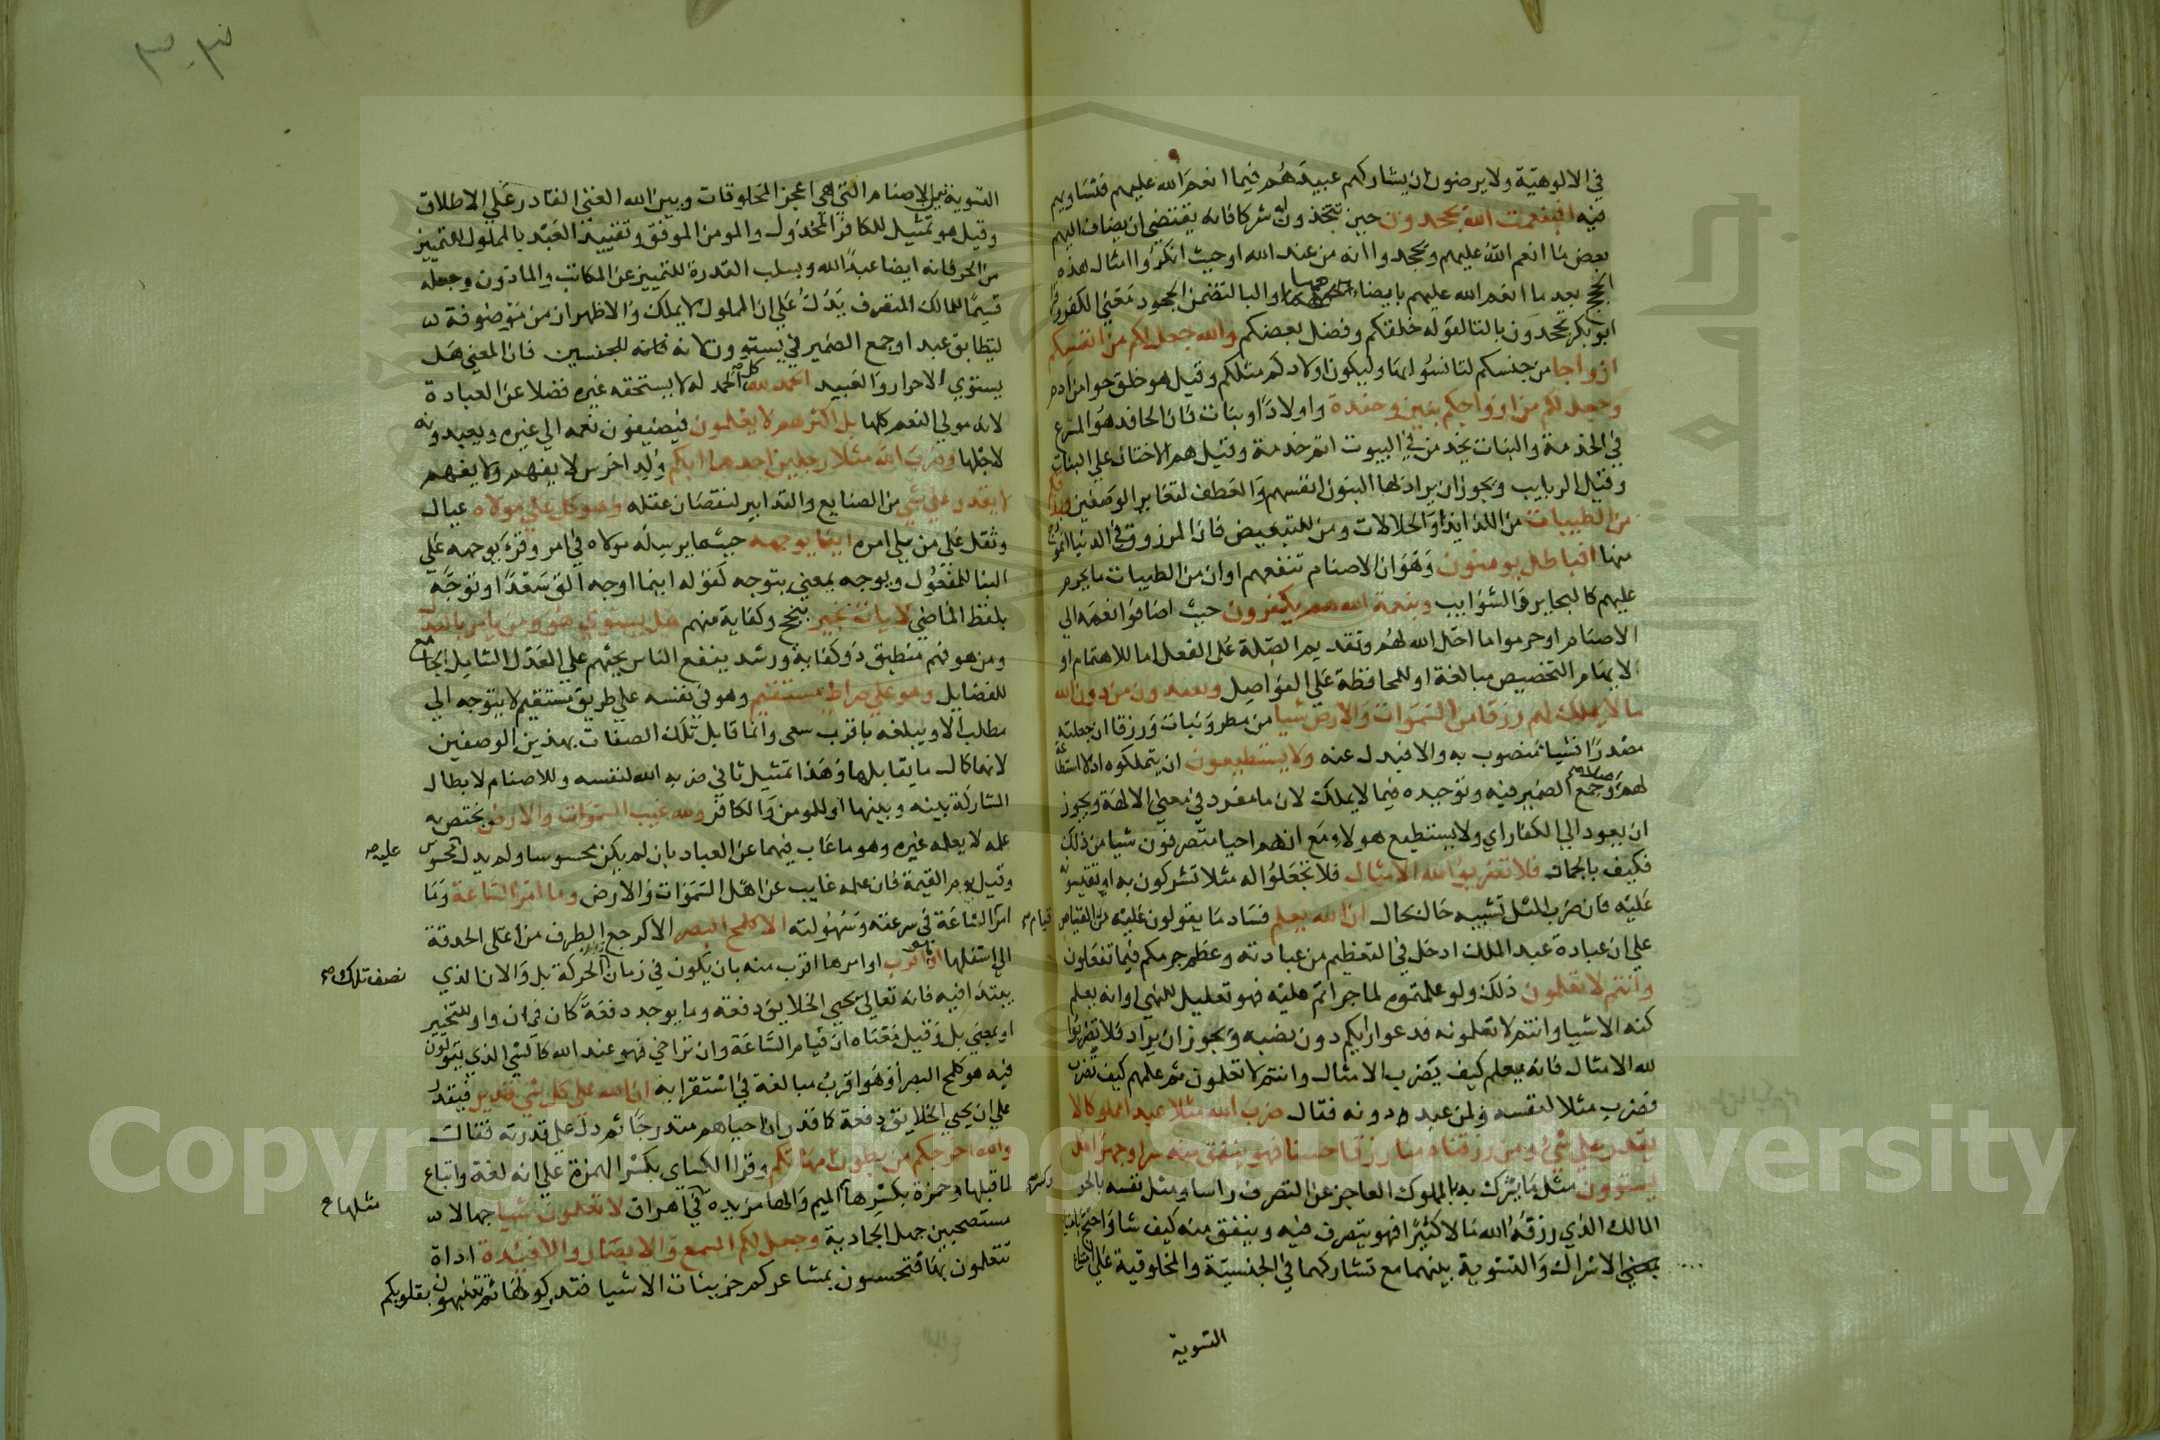 في الالوهية ولا يرضون ان يشاركهم عبيدهم فيما انعم الله عليهم فتساويهم
فيه افبنعمت الله يجحدون حين تتخذون له شركا فانه يقتضي ان يضاف اليهم
بعض ما انعم الله عليهم ويجحدوا انه من عند الله او حيث انكروا امثال هذه
الحجج بعد ما انعم الله عليهم بايضاحها والبا لتضمن الجحود معني الكفر وقرا
ابو بكر يجحدون بالتا لقوله خلقكم وفضل بعضكم والله جعل لكم من انفسكم
ازواجا من جنسكم لتانسوا بها وليكون اولادكم مثلكم وقيل هو خلق حوا من ادم
وجعل لكم من ازواجكم بنين وحفدة واولادا او بنات فان الحافد هو المسرع
في الخدمة والبنات يخدمن في البيوت اتم خدمة وقيل هم الاختان علي البنات
وقيل الربايب ويجوز ان يراد بها البنون انفسهم والعطف لتغاير الوصفين ورزقكم
من الطيبات من اللذايذ او الحلالات ومن للتبعيض فان المرزوق في الدنيا انموذج
منها افبالباطل يومنون وهو ان الاصنام تنفعهم او ان من الطيبات ما يحرم
عليهم كالبحاير والسوايب وبنعمة الله هم يكفرون حيث اضافوا نعمه الي
الاصنام او حرموا ما احل الله لهم وتقديم الصلة علي الفعل اما للاهتمام او
لايهام التخصيص مبالغة او للمحافظة علي الفواصل ويعبدون من دون الله
ما لا يملك لهم رزقا من السموات والارض شيا من مطر ونبات ورزقا ان جعلته
مصدرا فشيا منصوب به والا فبدل عنه ولا يستطيعون ان يتملكوه او لا استطاعة
لهم وجمع الضمير فيه وتوحيده فيما لا يملك لان ما مفرد في معني الالهة ويجوز
ان يعود الي الكفار اي ولا يستطيع هولا مع انهم احيا متصرفون شيا من ذلك
فكيف بالجماد فلا تضربوا لله الامثال فلا تجعلوا له مثلا تشركون به او تقيسونه
عليه فان ضرب المثل تشبيه حال بحال ان الله يعلم فساد ما يقولون عليه من القياس
علي ان عبادة عبد الملك ادخل في التعظيم من عبادته وعظم جرمكم فيما تفعلون
وانتم لا تعلمون ذلك ولو علمتموه لما جراتم عليه فهو تعليل للنهي او انه يعلم
كنه الاشيا وانتم لا تعلمونه فدعوا رايكم دون نصبه ويجوز ان يراد فلا تضربوا
لله الامثال فانه يعلم كيف يضرب الامثال وانتم لا تعلمون ثم علمهم كيف تضرب
فضرب مثلا لنفسه ولمن عبد دونه فقال ضرب الله مثلا عبدا مملوكا لا
يقدر علي شي ومن رزقناه منا رزقا حسنا فهو ينفق منه سرا وجهرا هل
يستوون مثل ما يشرك به بالمملوك العاجز عن التصرف راسا ومثل نفسه بالحر
المالك الذي رزقه الله مالا كثيرا فهو يتصرف فيه وينفق منه كيف شا واحتج بامتناع
الاشراك والتسوية بينهما مع تشاركهما في الجنسية والمخلوقية علي امتناع
التسوية
٣٠٣
التسوية بين الاصنام التي هي اعجز المخلوقات وبين الله الغني القادر علي الاطلاق
وقيل هو تمثيل للكافر المخذول والمومن الموفق وتقييد العبد بالمملوك للتمييز
من الحر فانه ايضا عبد الله وبسلب القدرة للتمييز عن المكاتب والماذون وجعله
قسيما للمالك المتصرف يدل علي ان المملوك لا يملك والاظهر ان من موصوفة
ليتطابق عبد او جمع الضمير في يستوون لانه للجنسين فان المعني هل
يستوي الاحرار والعبيد الحمد لله كل الحمد له لا يستحقه غيره فضلا عن العبادة
لانه مولي النعم كلها بل اكثرهم لا يعلمون فيضيفون نعمه الي غيره ويعبدونه
لاجلها وضرب الله مثلا رجلين احدهما ابكم ولد اخرس لا يفهم ولا يفهم
لا يقدر علي شي من الصنايع والتدابير لنقصان عقله وهو كل علي مولاه عيال
وثقل علي من يلي امره اينما يوجهه حيثما يرسله مولاه في امر وقري يوجه علي
البنا للمفعول ويوجه بمعني يتوجه لقوله اينما اوجه الق سعدا وتوجه
بلفظ الماضي لا يات بخير بنجح وكفاية مهم هل يستوي هو ومن يامر بالعدل
ومن هو فهم منطيق ذو كفاية ورشد ينفع الناس بحثهم علي العدل الشامل لمجامع
للفضايل وهو علي صراط مستقيم وهو في نفسه علي طريق مستقيم لا يتوجه الي
مطلب الا ويبلغه باقرب سعي وانما قابل تلك الصفات بهذين الوصفين
لانهما كمال ما يقابلها وهذا تمثيل ثاني ضربه الله لنفسه وللاصنام لابطال
المشاركة بينه وبينها او للمومن والكافر ولله غيب السموات والارض يختص به
علمه لا يعلمه غيره وهو ما غاب فيهما عن العباد بان لم يكن محسوسا ولم يدل محسوس
عليه
وقيل يوم القيمة فان علمه غايب عن اهل السموات والارض وما امر الساعة وما
امر الساعة في سرعته وسهولته الا كلمح البصر الا كرجع الطرف من اعلي الحدقة
قيام
الي اسفلها او هو اقرب او امرها اقرب منه بان يكون في زمان الحركة بل والان الذي
نصف تلك
يبتدا فيه فانه تعالي يحيي الخلايق دفعة وما يوجد دفعة كان في ان واو للتخيير
او بمعني بل وقيل معناه ان قيام الساعة وان تراخي فهو عند الله كالشي الذي يقولون
فيه هو كلمح البصر او هو اقرب مبالغة في استقرابه ان الله علي كل شي قدير فيقدر
علي ان يحيي الخلايق دفعة كما قدر ان احياهم متدرجا ثم دل علي قدرته فقال
والله اخرجكم من بطون امهاتكم وقرا الكساي بكسر الهمزة علي انه لغة واتباع
لما قبلها وحمزة بكسرها الميم والها مزيدة في اهراق لا تعلمون شيا جهالا
مثلها
مستصحبين جهل الجمادية وجعل لكم السمع والابصار والافيدة اداة
تتعلمون بها فتحسون بمشاعركم جزييات الاشيا فتدركونها ثم تتنبهون بقلوبكم
Copyright © King Saud University